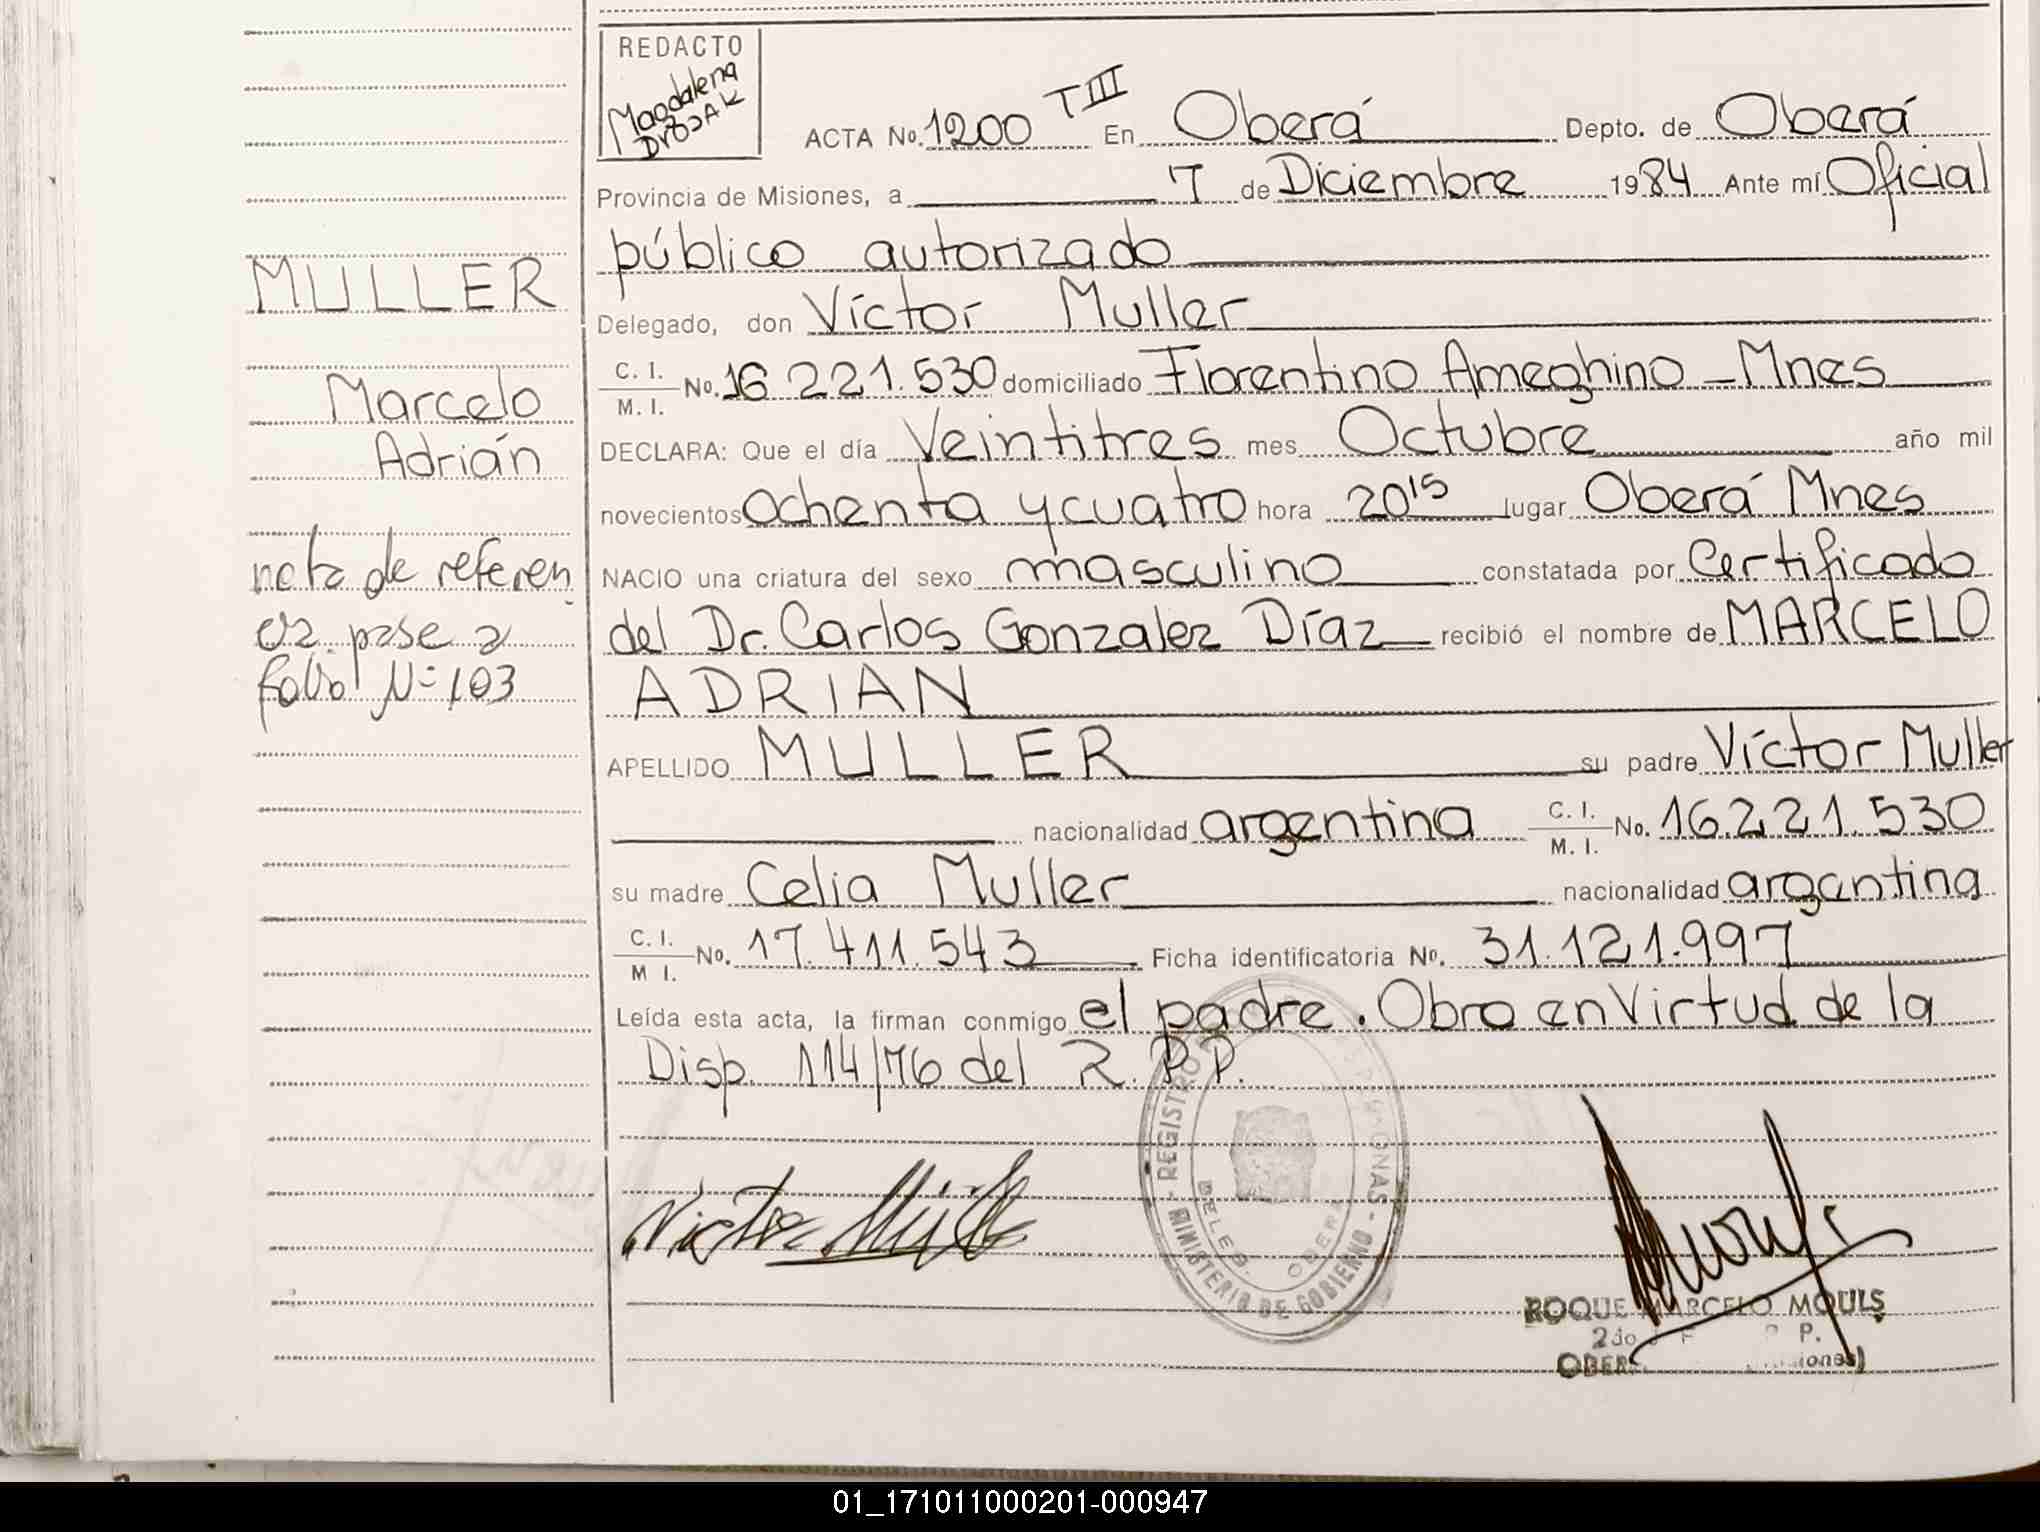 REDACTO
Magdalena
ACTA No. 1200 TIII En Oberá Depto. de Oberá
Provincia de Misiones, a 7 de Diciembre 1984 Ante mí Oficial
público autorizado
MULLER
Delegado, don Víctor Muller
C. I.
M. I. No. 16 221.530 domiciliado Florentino Ameghino - Mnes
Marcelo
Adrián
DECLARA: Que el día Veintitres mes Octubre año mil
novecientos ochenta y cuatro hora 20¹⁵ lugar Oberá Mnes
nota de referen
cia pase a
folio Nº 103
NACIO una criatura del sexo masculino constatada por Certificado
del Dr. Carlos Gonzalez Díaz recibió el nombre de MARCELO
ADRIAN
APELLIDO MULLER su padre Víctor Muller
nacionalidad argentina C. I.
M. I. No. 16.221.530
su madre Celia Muller nacionalidad argentina
C. I.
M I. No. 17.411.543 Ficha identificatoria No. 31.121.997
Leída esta acta, la firman conmigo el padre. Obro en Virtud de la
Disp. 114/76 del R.P.P.
REGISTRO
PERSONAS
MINISTERIO DE GOBIERNO
DELEG.
OBERA
Victor Müller
ROQUE MARCELO MOULS
2do P.
01_171011000201-000947